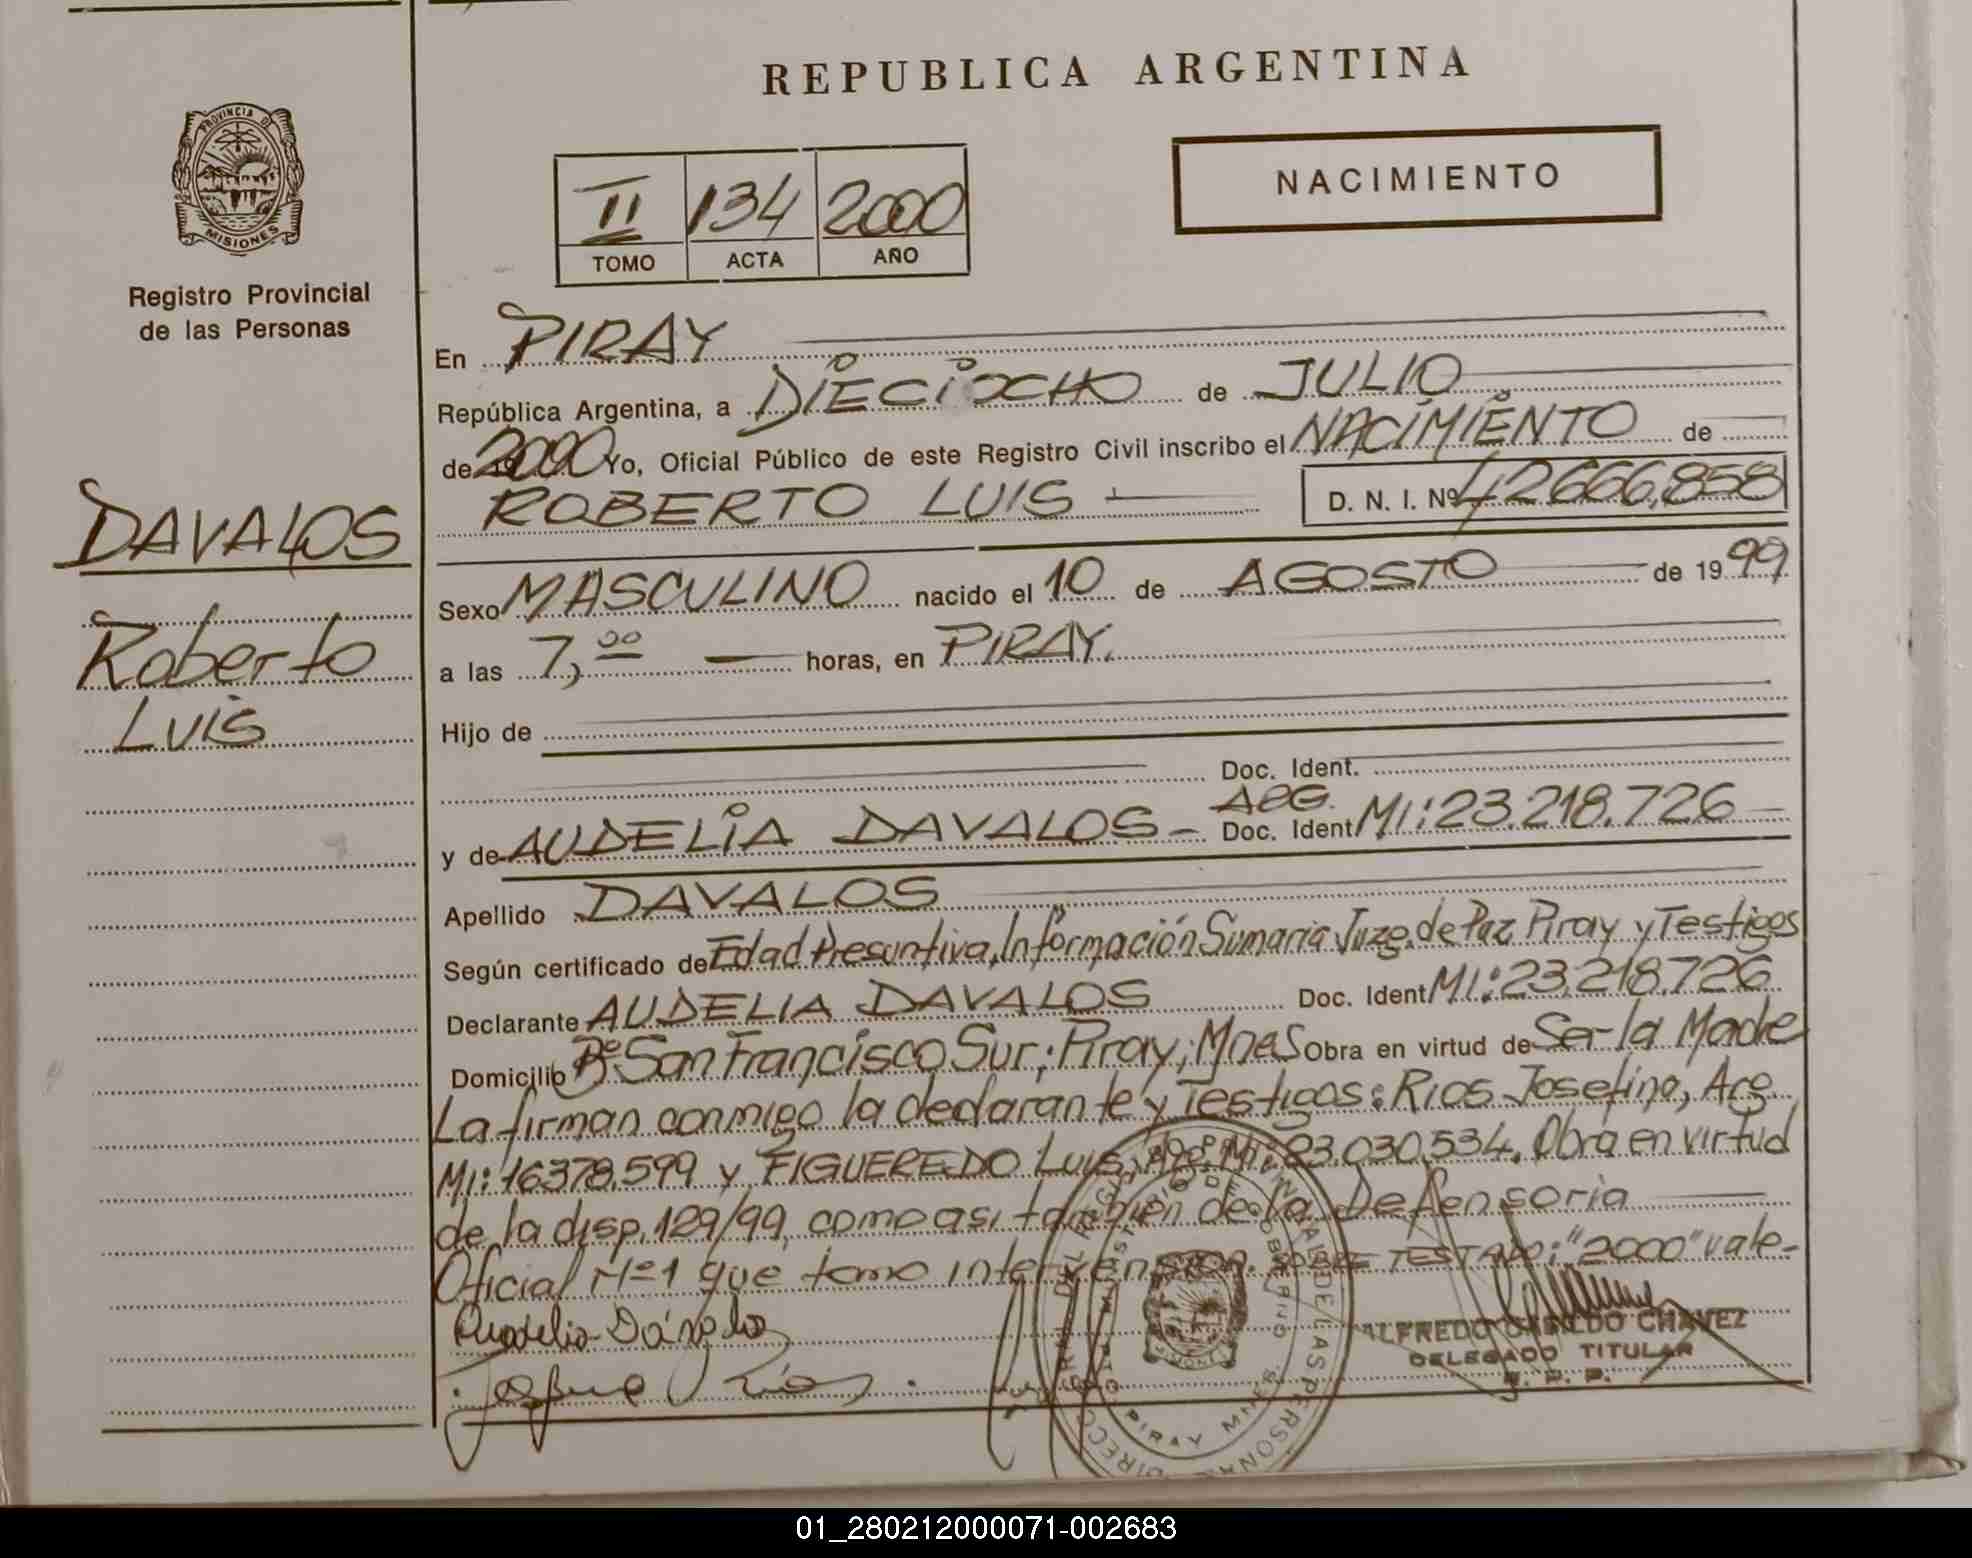 REPUBLICA ARGENTINA
PROVINCIA DE
MISIONES
Registro Provincial
de las Personas
NACIMIENTO
II 134 2000
TOMO ACTA AÑO
DAVALOS
Roberto
Luis
En PIRAY
República Argentina, a DIECIOCHO de JULIO
de 2000 Yo, Oficial Público de este Registro Civil inscribo el NACIMIENTO de
ROBERTO LUIS D. N. I. Nº 42666.858
Sexo MASCULINO nacido el 10 de AGOSTO de 1999
a las 7,00 horas, en PIRAY.
Hijo de
Doc. Ident.
y de AUDELIA DAVALOS - Doc. Ident ARG. MI: 23.218.726
Apellido DAVALOS
Según certificado de Edad Presuntiva, Información Sumaria Juzg. de Paz Piray y Testigos
Declarante AUDELIA DAVALOS Doc. Ident MI: 23.218.726
Domicilio Bº San Francisco Sur; Piray; Mnes Obra en virtud de Ser la Madre
La firman conmigo la declarante y Testigos: RIOS Josefina, Arg.
MI: 16378.599 y FIGUEREDO Luis, Arg. MI: 23.030.534. Obra en virtud
de la disp. 129/99, como asi tambien de la Defensoria
Oficial Nº 1 que tomo intervension. SOBRE TESTADO: "2000" vale-
ALFREDO CASILDO CHAVEZ
DELEGADO TITULAR
R. P. P.
PIRAY MNES.
01_280212000071-002683